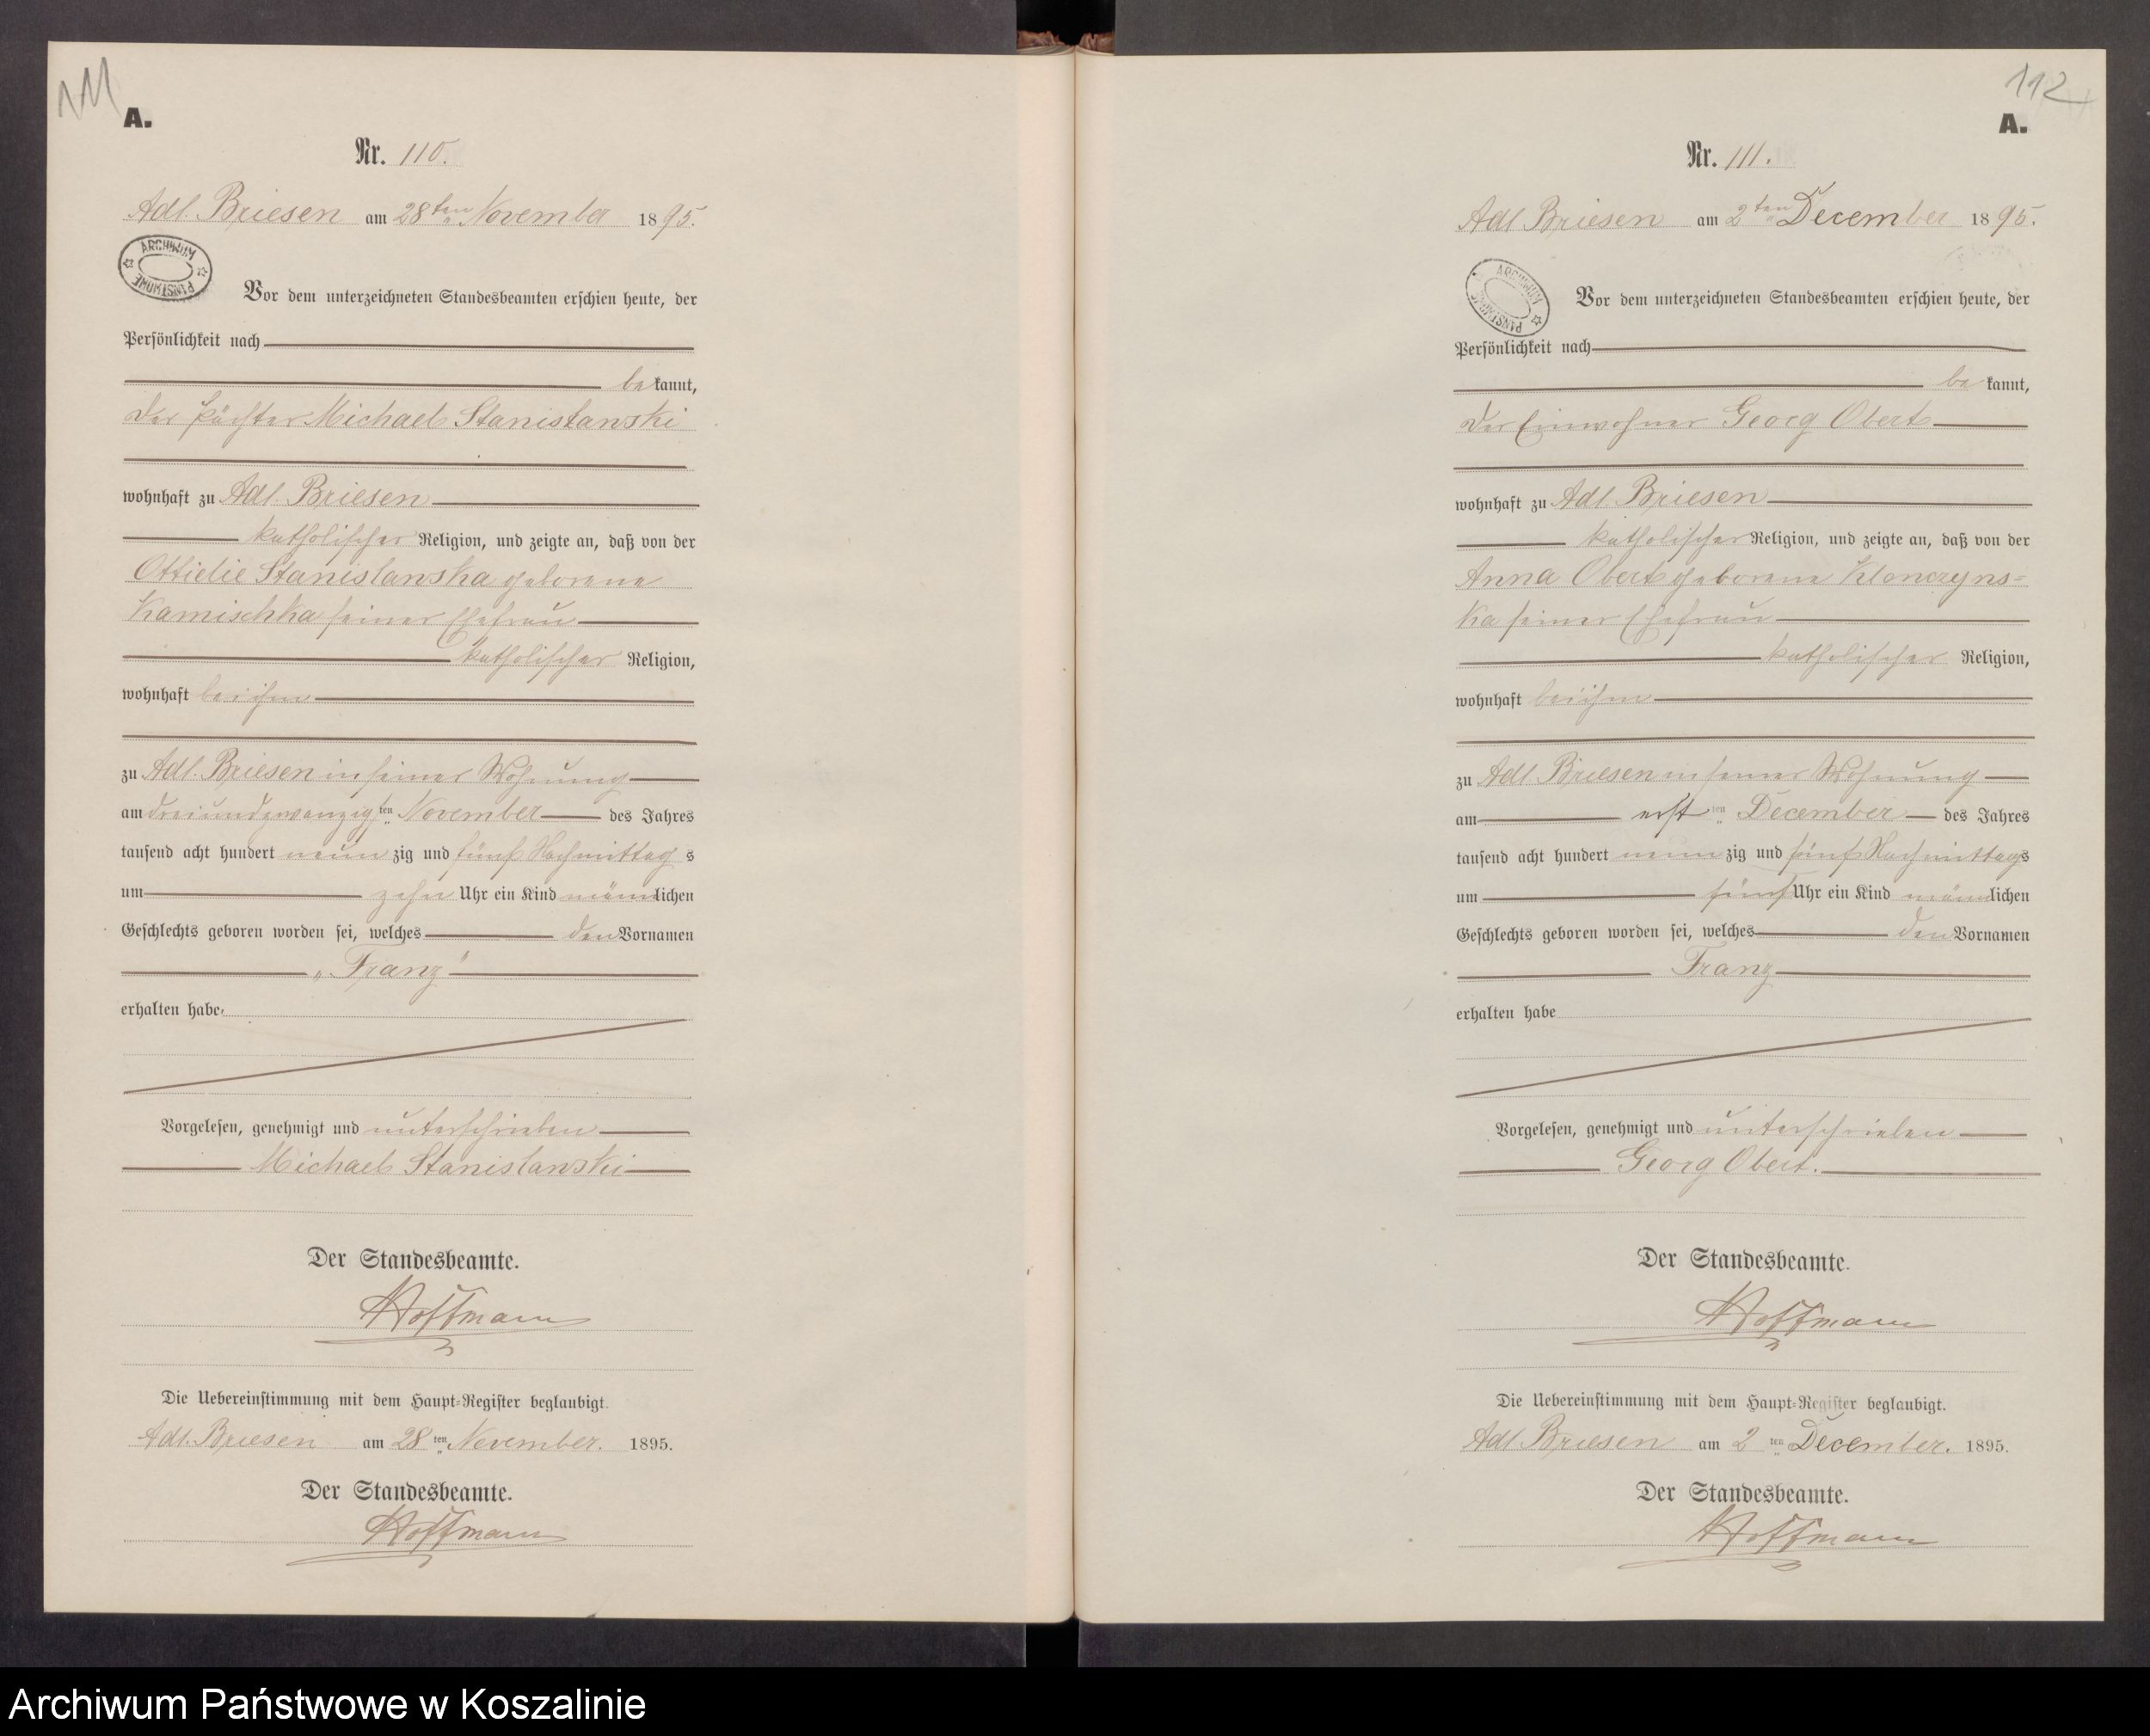 111
A.
Nr. 110.
Adl. Briesen am 28ten November 1895.
ARCHIWUM PAŃSTWOWE
Vor dem unterzeichneten Standesbeamten erschien heute, der
Persönlichkeit nach
bekannt,
der Pächter Michael Stanisławski
wohnhaft zu Adl. Briesen
katholischer Religion, und zeigte an, daß von der
Ottielie Stanislawska geborene
Kamischka seiner Ehefrau
katholischer Religion,
wohnhaft bei ihm
zu Adl. Briesen in seiner Wohnung
am dreiundzwanzigten November des Jahres
tausend acht hundert neunzig und fünf Nachmittags
um zehn Uhr ein Kind männlichen
Geschlechts geboren worden sei, welches den Vornamen
„Franz“
erhalten habe.
Vorgelesen, genehmigt und unterschrieben
Michael Stanislawski
Der Standesbeamte.
Hoffmann
Die Uebereinstimmung mit dem Haupt-Register beglaubigt.
Adl. Briesen am 28ten November. 1895.
Der Standesbeamte.
Hoffmann
112
A.
Nr. 111.
Adl Briesen am 2ten December 1895.
ARCHIWUM PAŃSTWOWE
Vor dem unterzeichneten Standesbeamten erschien heute, der
Persönlichkeit nach
bekannt,
der Einwohner Georg Obert
wohnhaft zu Adl. Briesen
katholischer Religion, und zeigte an, daß von der
Anna Obert geborene Klonczyns=
ka seiner Ehefrau
katholischer Religion,
wohnhaft bei ihm
zu Adl. Briesen in seiner Wohnung
am erstten December des Jahres
tausend acht hundert neunzig und fünf Nachmittags
um fünf Uhr ein Kind männlichen
Geschlechts geboren worden sei, welches den Vornamen
Franz
erhalten habe
Vorgelesen, genehmigt und unterschrieben
Georg Obert.
Der Standesbeamte.
Hoffmann
Die Uebereinstimmung mit dem Haupt-Register beglaubigt.
Adl. Briesen am 2ten December. 1895.
Der Standesbeamte.
Hoffmann
Archiwum Państwowe w Koszalinie